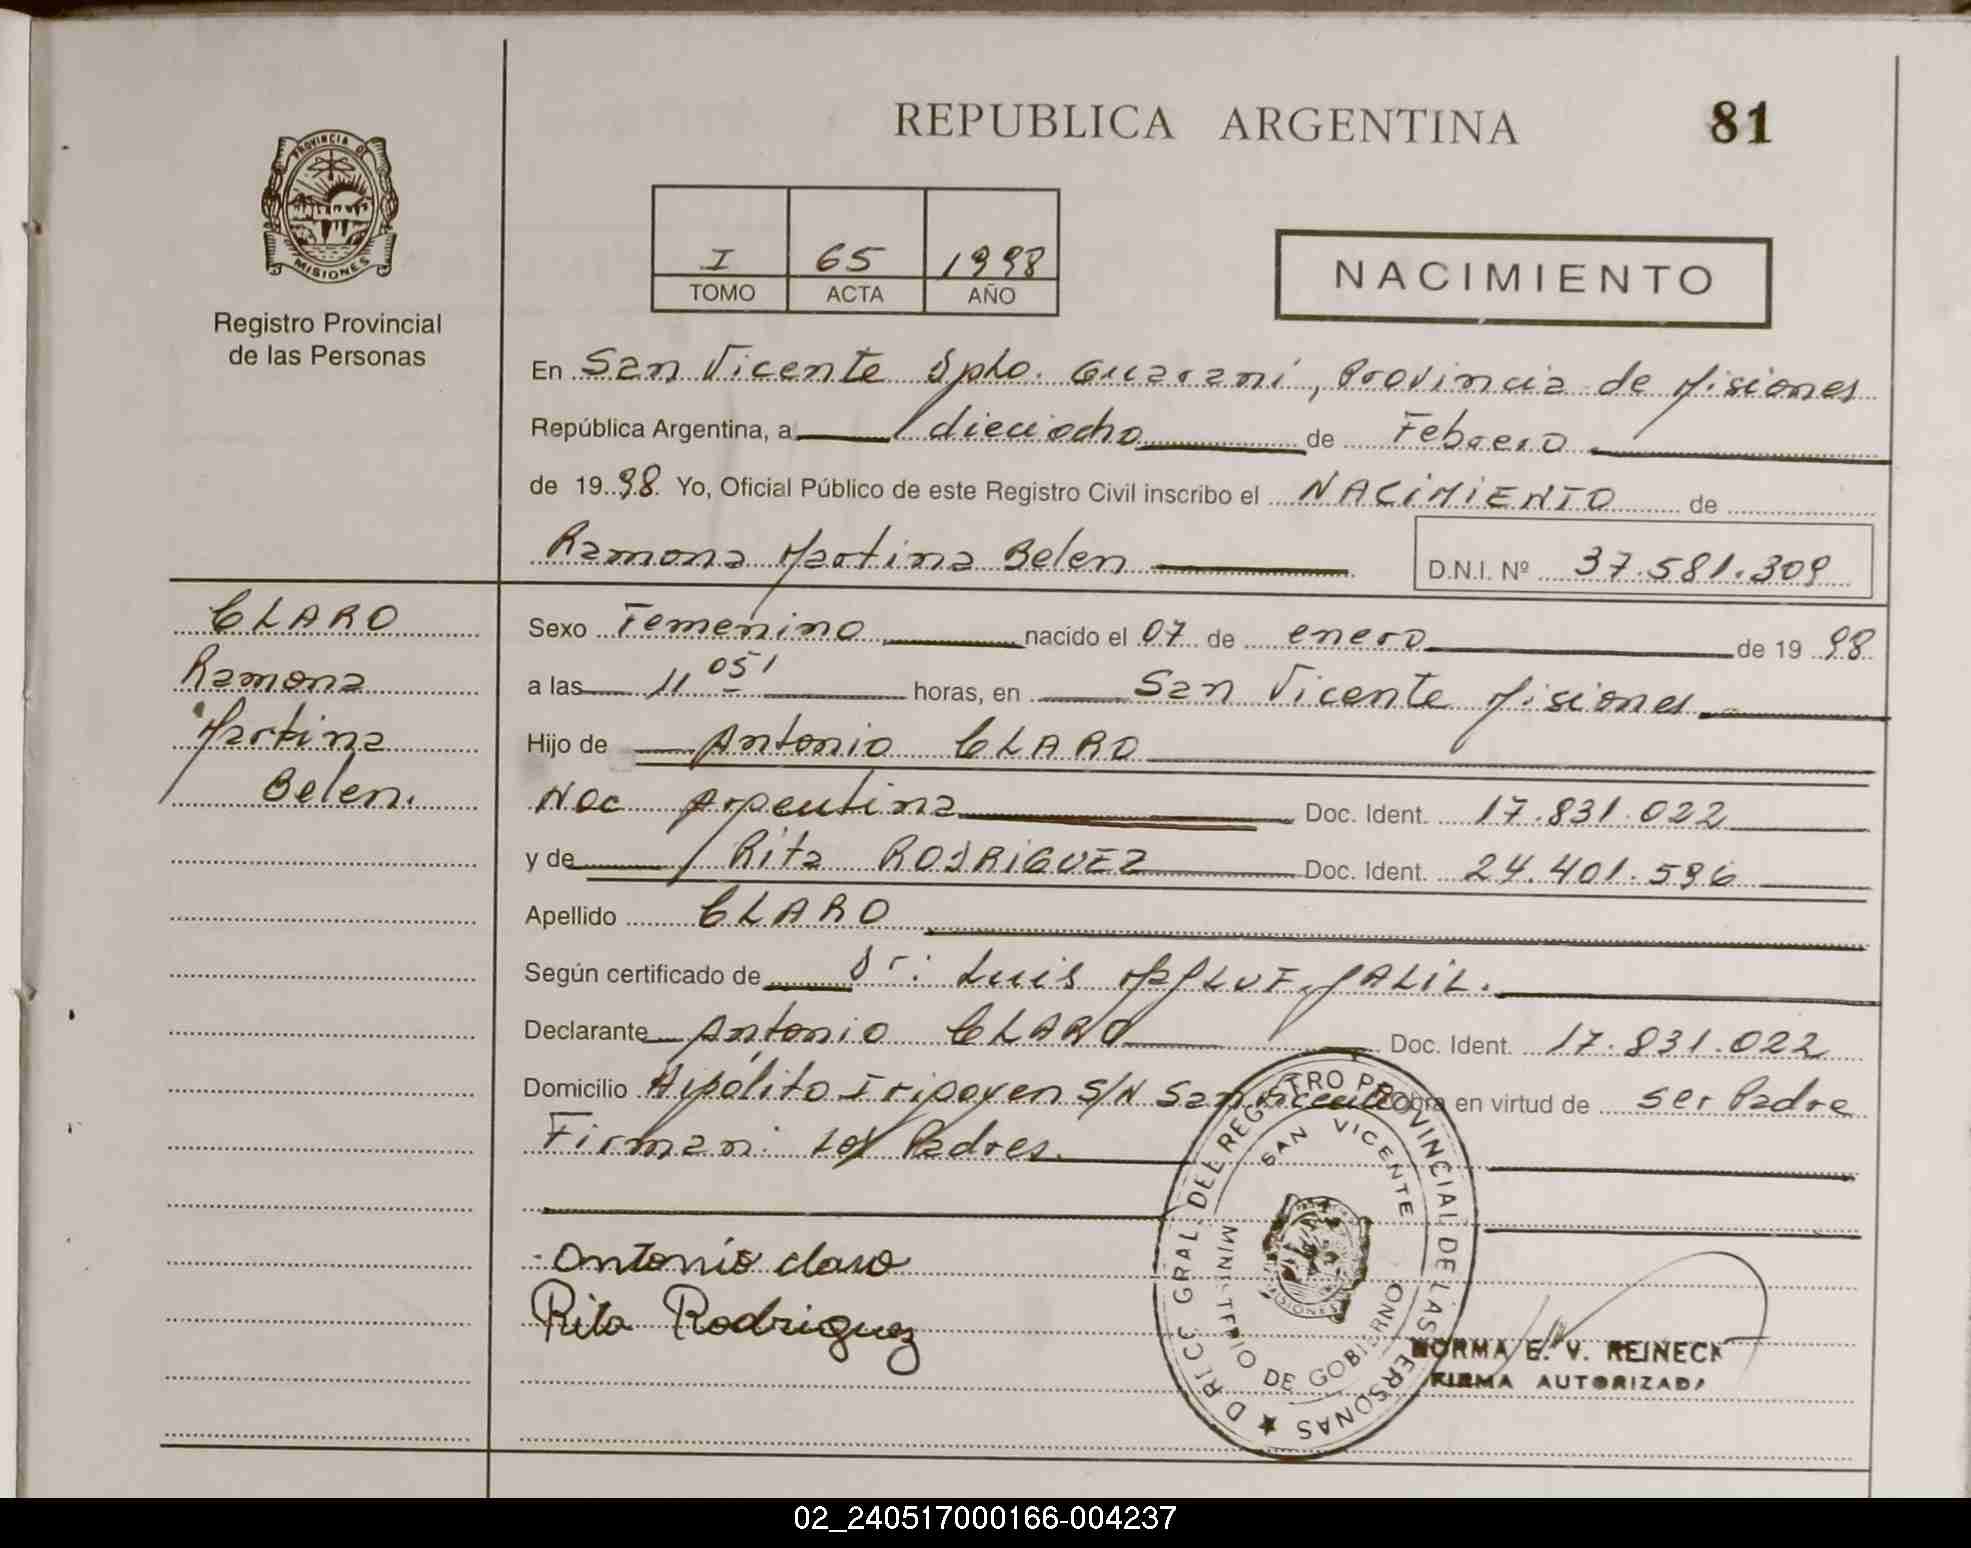 REPUBLICA ARGENTINA
81
PROVINCIA DE
MISIONES
Registro Provincial
de las Personas
I 65 1998
TOMO ACTA AÑO
NACIMIENTO
En San Vicente Dpto. Guaraní, Provincia de Misiones
República Argentina, a dieciocho de Febrero
de 1998 Yo, Oficial Público de este Registro Civil inscribo el NACIMIENTO de
Ramona Martina Belen
D.N.I. Nº 37.581.309
CLARO
Ramona
Martina
Belen.
Sexo Femenino nacido el 07 de enero de 1998
a las 11 05' horas, en San Vicente Misiones
Hijo de Antonio CLARO
Nac Argentina Doc. Ident. 17.831.022
y de Rita RODRIGUEZ Doc. Ident. 24.401.596
Apellido CLARO
Según certificado de Dr: Luis JALIL.
Declarante Antonio CLARO Doc. Ident. 17.831.022
Domicilio Hipólito Irigoyen S/N San Vicente Obra en virtud de ser Padre
Firman: Los Padres.
Antonio claro
Rita Rodriguez
DIREC GRAL. DEL REGISTRO PROVINCIAL DE LAS PERSONAS
SAN VICENTE
MINISTERIO DE GOBIERNO
MISIONES
NORMA E. V. REINECK
FIRMA AUTORIZADA
02_240517000166-004237